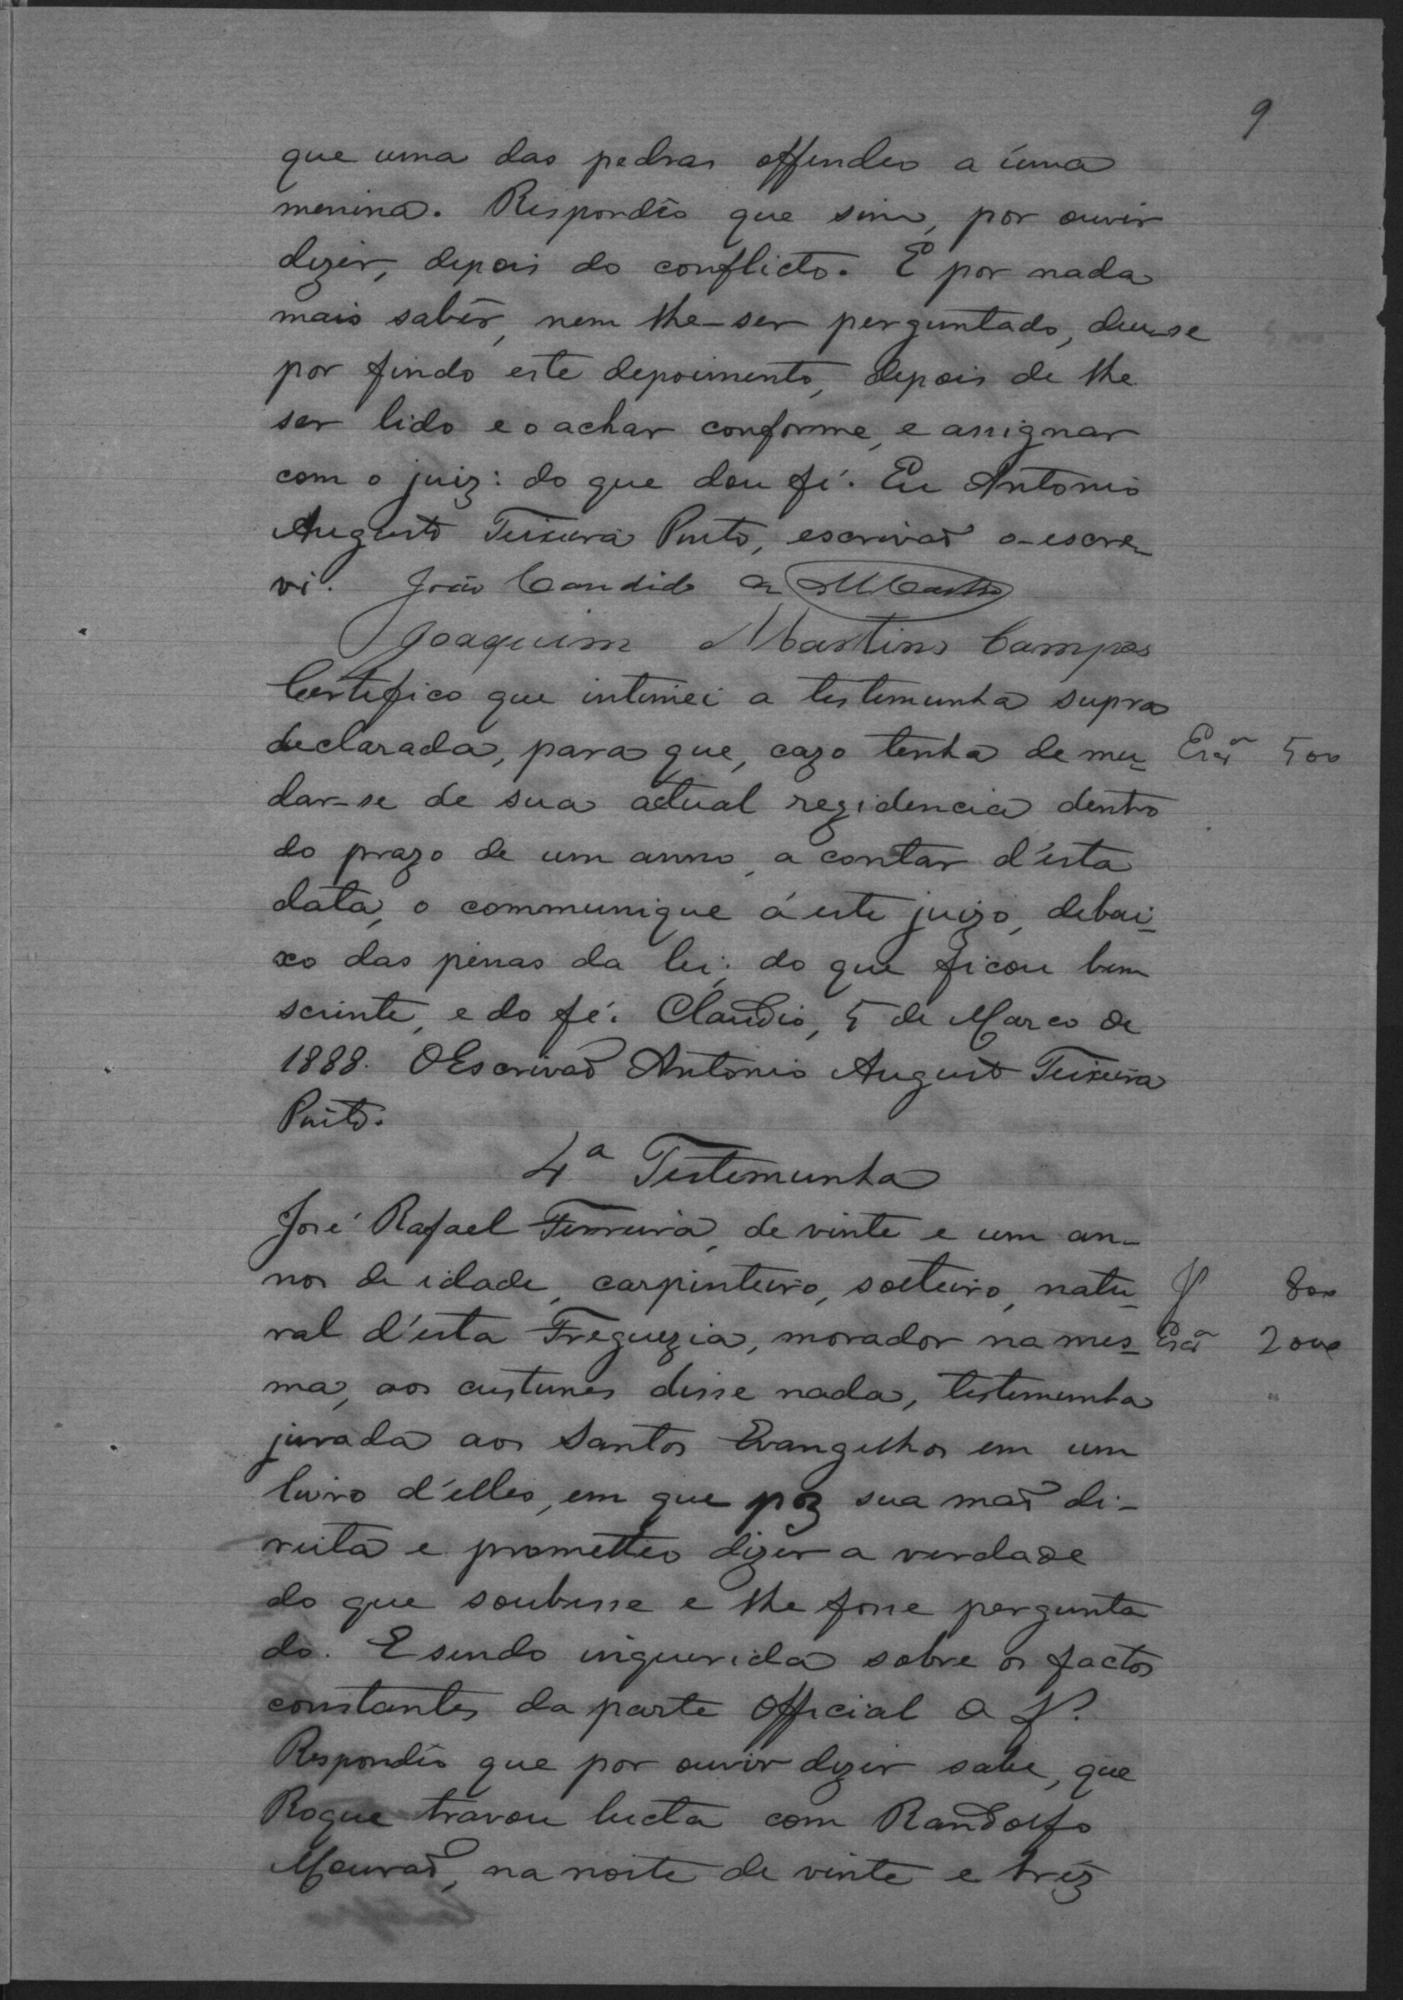 9
que uma das pedras offendeo a úma
menina. Respondêo que sim, por ouvir
dizer, depois do conflicto. E por nada
mais sabêr, nem lhe-ser perguntado, deu-se
por findo este depoimento, depois de lhe
ser lido e o achar conforme, e assignar
com o juiz: do que dou fé. Eu Antonio
Augusto Teixeira Pinto, escrivaõ o-escre-
vi. João Candido
Joaquim Martins Campos
Certefico que intimei a testemunha supra
declarada, para que, cazo tenha de mu- Escão 500
dar-se de sua actual rezidencia dentro
do prazo de um anno, a contar d'esta
data, o communique á este juizo, debai-
xo das penas da lei; do que ficou bem
sciente, e do fé. Claudio, 5 de Março de
1888. O Escrivaõ Antonio Augusto Teixeira
Pinto.
4ª Testemunha
José Rafael Ferreira, de vinte e um an-
nos de idade, carpinteiro, solteiro, natu- J 800
ral d'esta Freguezia, morador na mes- Escão 2000
ma, aos custumes disse nada, testemunha
jurada aos Santos Evangelhos em um
livro d'elles, em que poz sua maõ di-
reita e prometteo dizer a verdade
do que soubesse e lhe fosse pergunta
do. E sendo inquerida sobre os factos
constantes da parte official a f.
Respondêo que por ouvir dizer sabe, que
Roque travou lucta com Randolfo
Mouraõ, na noite de vinte e trêz